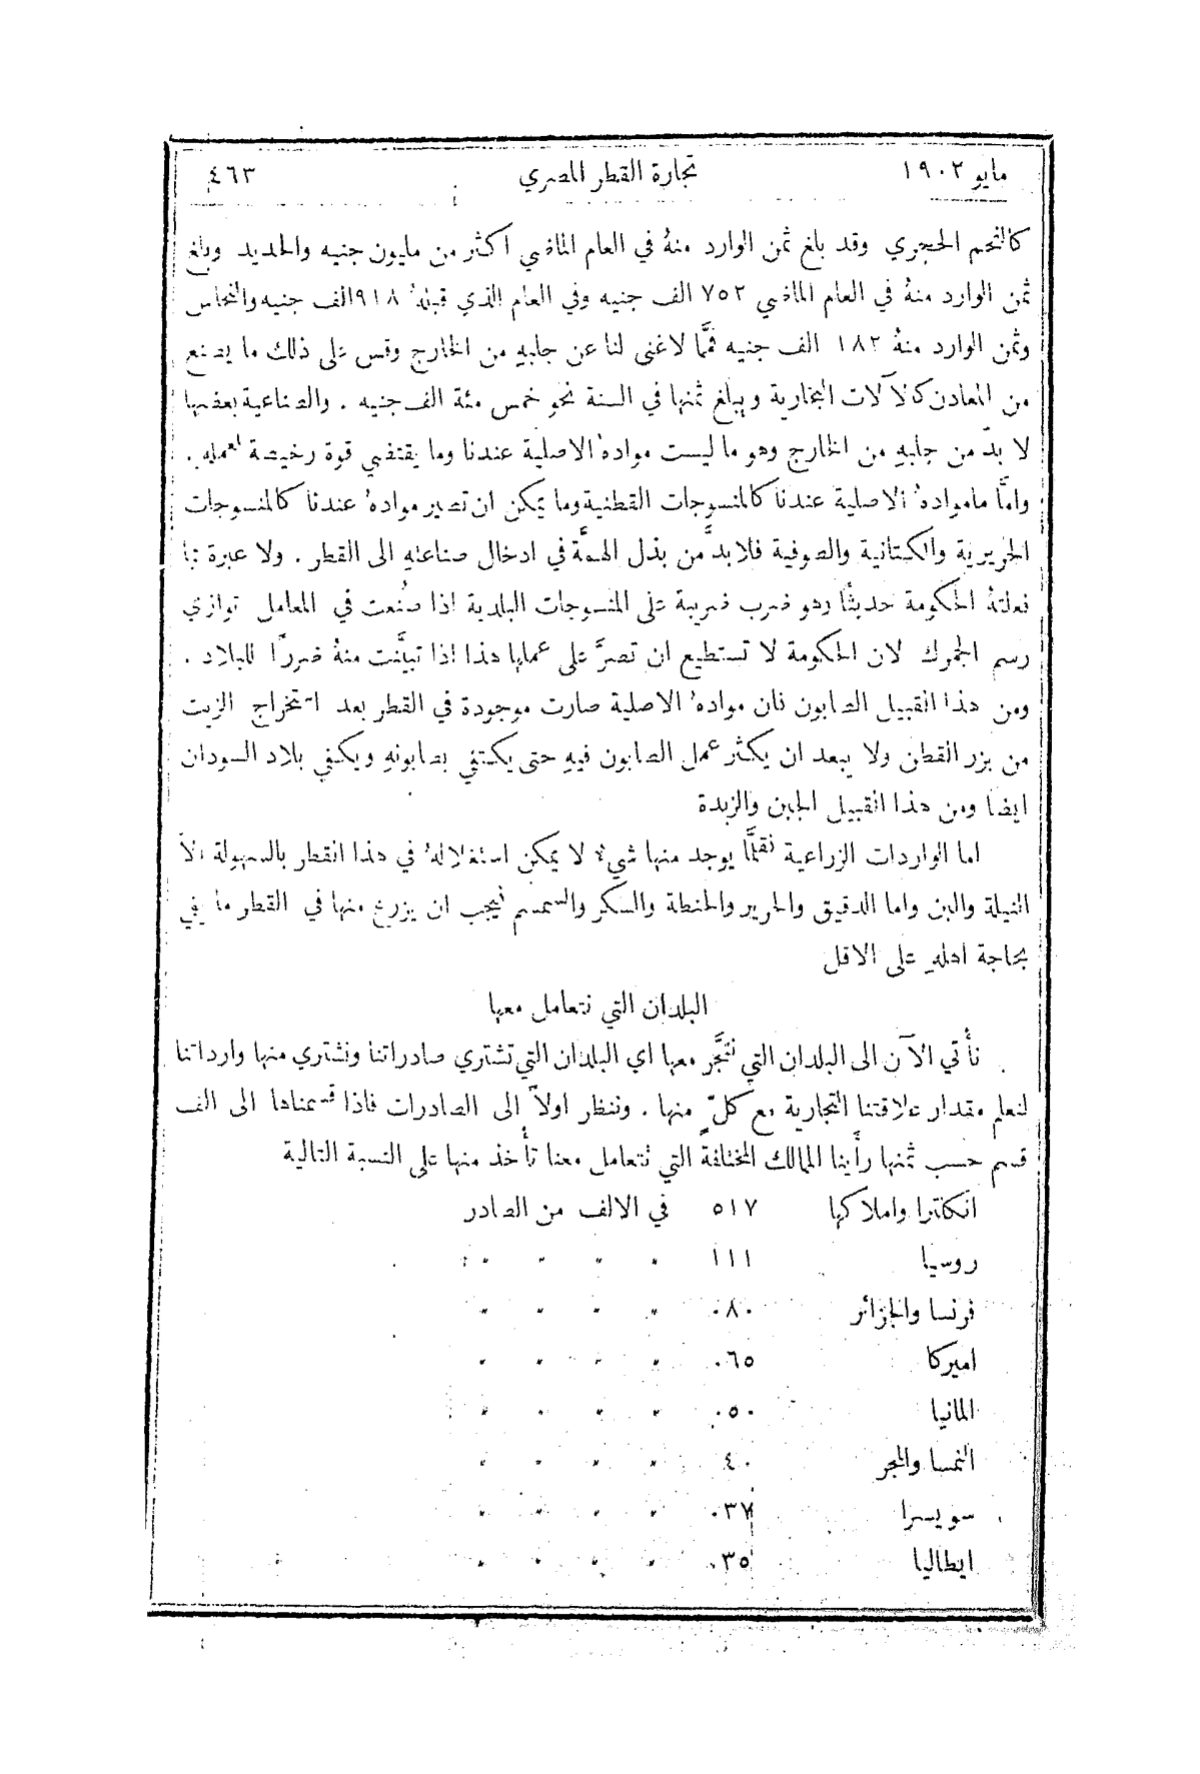 مايو ١٩٠٢ تجارة القطر المصري ٤٦٣
كالفحم الحجري وقد بلغ ثمن الوارد منهُ في العام الماضي اكثر من مليون جنيه والحديد وبلغ
ثمن الوارد منهُ في العام الماضي ٧٥٢ الف جنيه وفي العام الذي قبلهُ ٩١٨ الف جنيه والنحاس
وثمن الوارد منهُ ١٨٢ الف جنيه فممَّا لا غنى لنا عن جلبهِ من الخارج وقس على ذلك ما يصنع
من المعادن كالآلات البخارية ويبلغ ثمنها في السنة نحو خمس مئة الف جنيه . والصناعية بعضها
لا بدّ من جلبهِ من الخارج وهو ما ليست موادهُ الاصلية عندنا وما يقتضي قوة رخيصة لعملهِ .
وامَّا ما موادهُ الاصلية عندنا كالمنسوجات القطنية وما يمكن ان تصير موادهُ عندنا كالمنسوجات
الحريرية والكتانية والصوفية فلا بدَّ من بذل الهمَّة في ادخال صناعتهِ الى القطر . ولا عبرة بما
فعلتهُ الحكومة حديثًا وهو ضرب ضريبة على المنسوجات البلدية اذا صُنعت في المعامل توازي
رسم الجمرك لان الحكومة لا تستطيع ان تصرَّ على عملها هذا اذا تبيَّنت منهُ ضررًا للبلاد .
ومن هذا القبيل الصابون فان موادهُ الاصلية صارت موجودة في القطر بعد استخراج الزيت
من بزر القطن ولا يبعد ان يكثر عمل الصابون فيهِ حتى يكتفي بصابونهِ ويكفي بلاد السودان
ايضًا ومن هذا القبيل الجبن والزبدة
اما الواردات الزراعية فقلَّما يوجد منها شيء لا يمكن استغلالهُ في هذا القطر بالسهولة الاَّ
النيلة والبن واما الدقيق والحرير والحنطة والسكر والسمسم فيجب ان يزرع منها في القطر ما يفي
بحاجة اهلهِ على الاقل
البلدان التي نتعامل معها
نأتي الآن الى البلدان التي نتَّجر معها اي البلدان التي تشتري صادراتنا ونشتري منها وارداتنا
لنعلم مقدار علاقتنا التجارية مع كلّ منها . وننظر اولاً الى الصادرات فاذا قسمناها الى الف
قسم حسب ثمنها رأينا الممالك المختلفة التي نتعامل معنا تأخذ منها على النسبة التالية
انكلترا واملاكها ٥١٧ في الالف من الصادر
روسيا ١١١ " " " "
فرنسا والجزائر ٠٨٠ " " " "
اميركا ٠٦٥ " " " "
المانيا ٠٥٠ " " " "
النمسا والمجر ٤٠ " " " "
سويسرا ٠٣٧ " " " "
ايطاليا ٠٣٥ " " " "